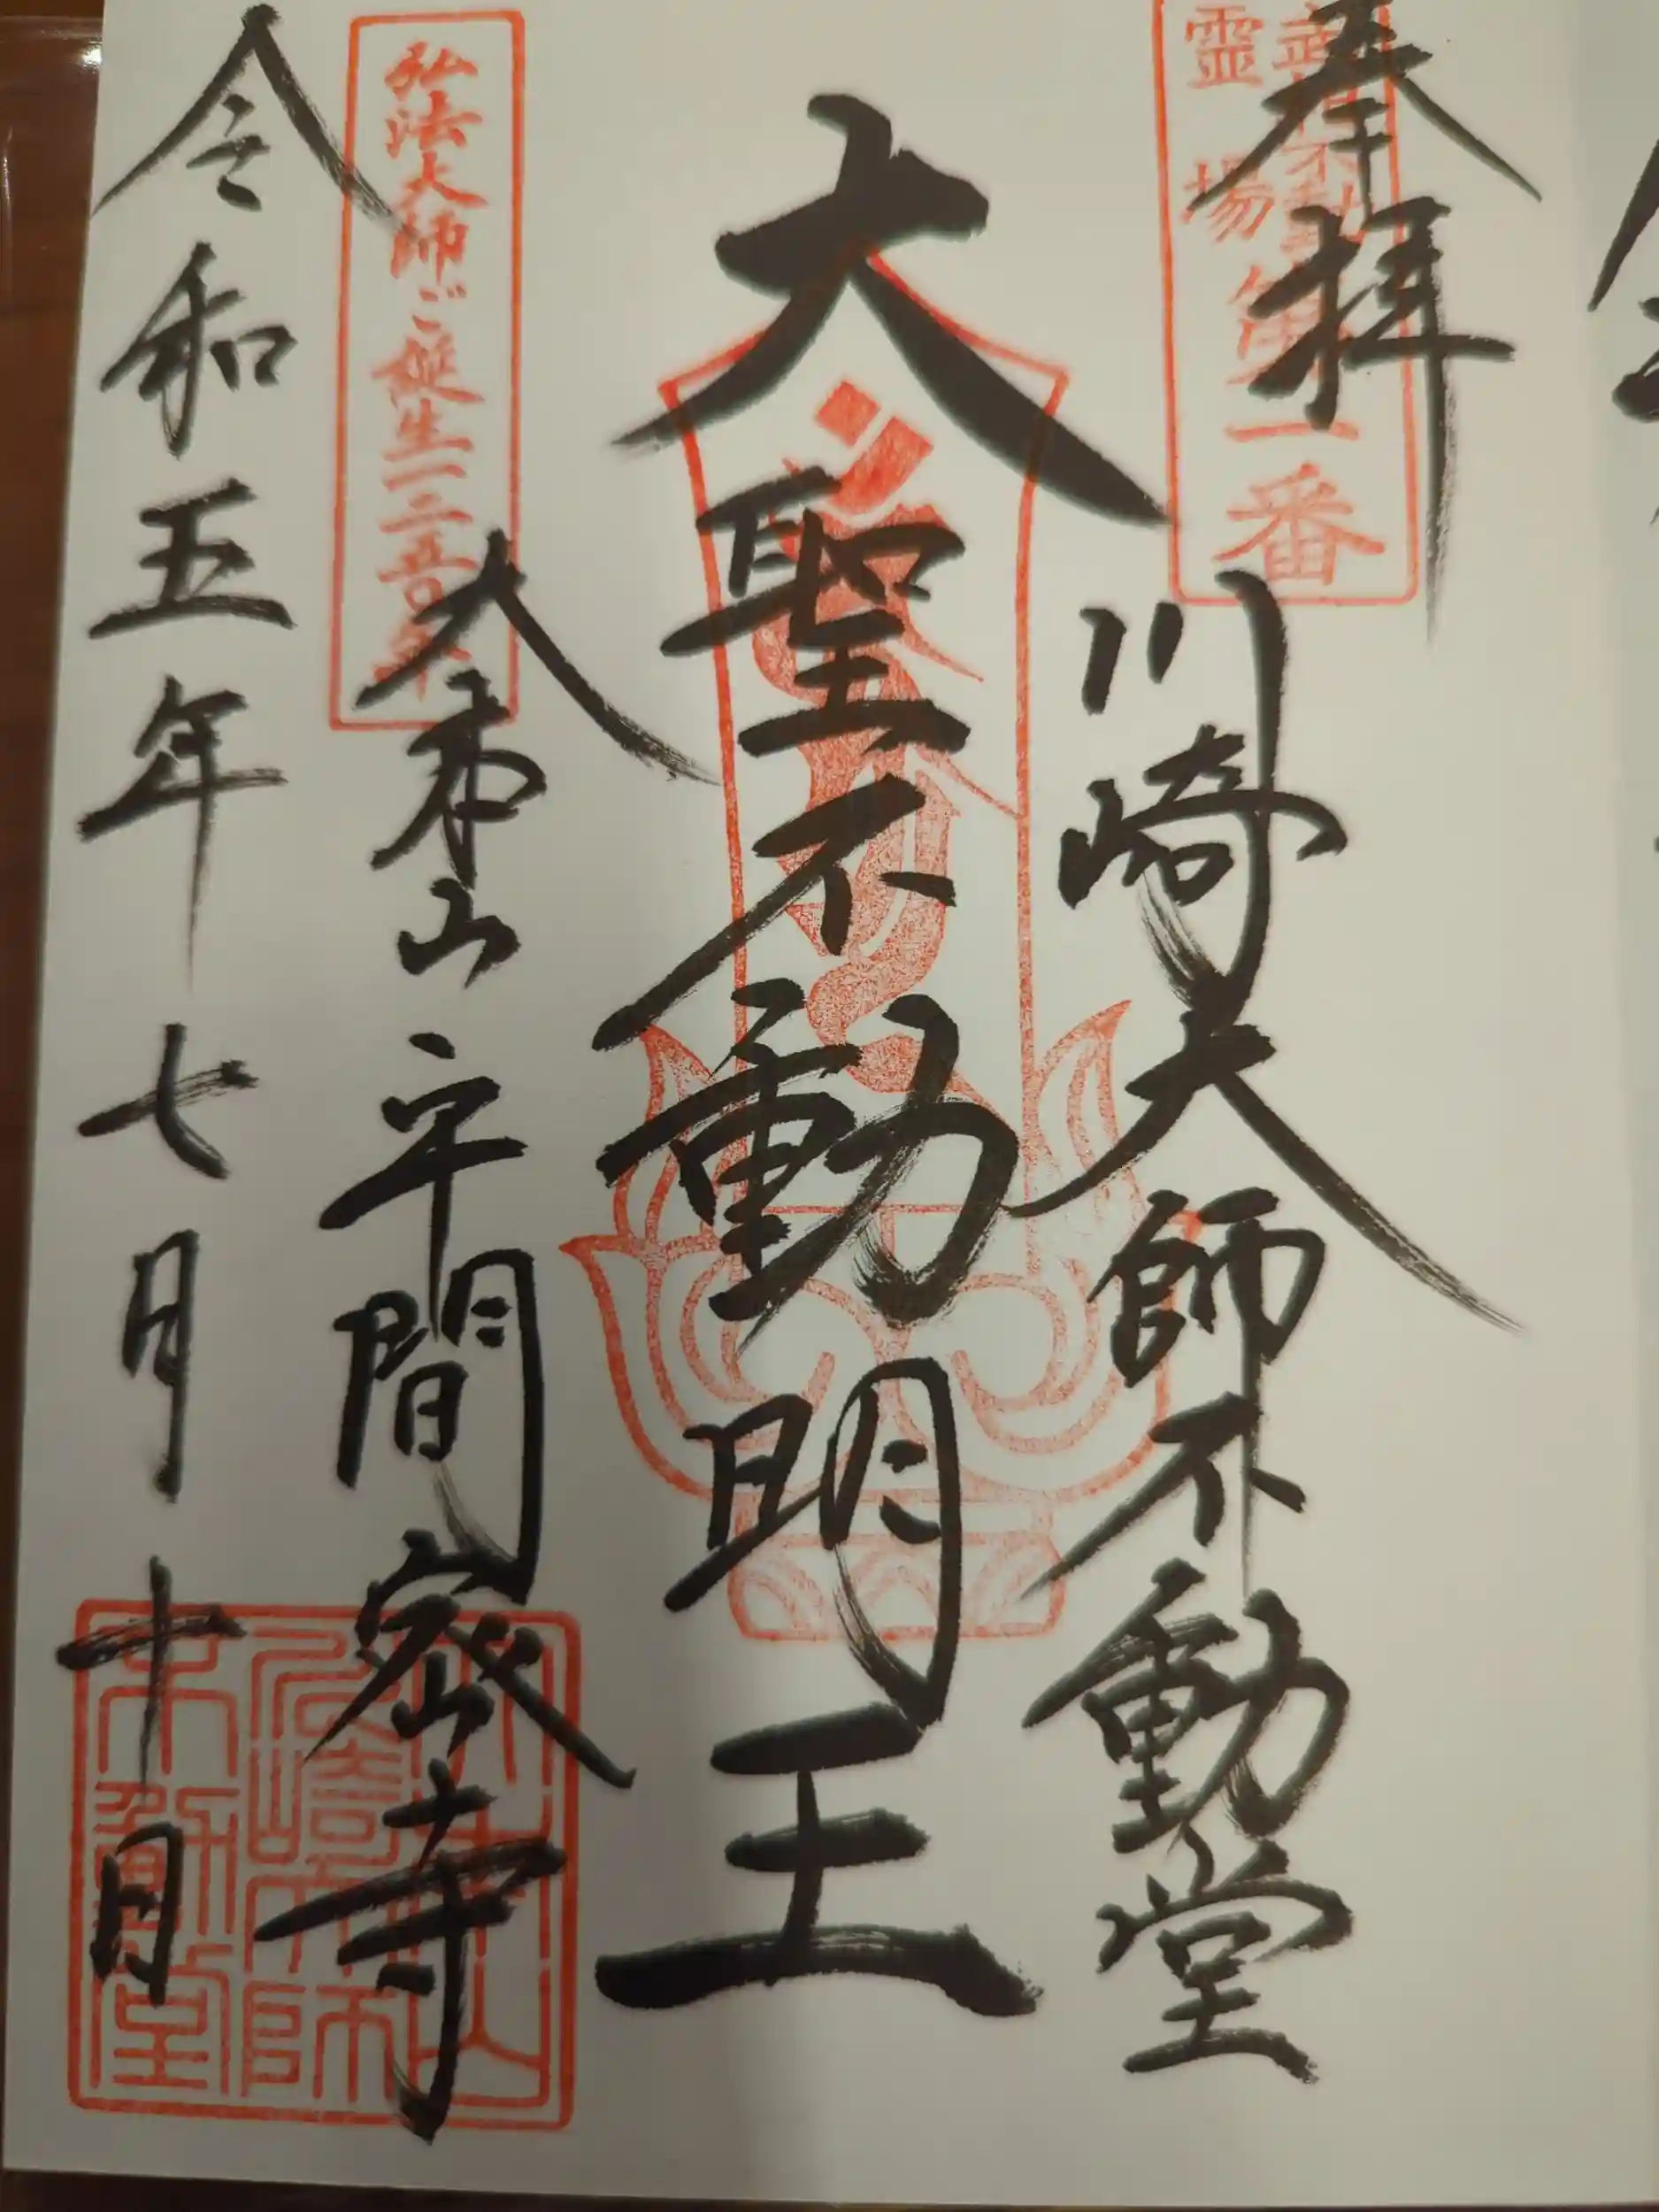 奉拝
川崎大師不動堂
霊場
第一番
大聖不動明王
弘法大師ご誕生一二五〇年
大本山平間密寺
令和五年七月十日